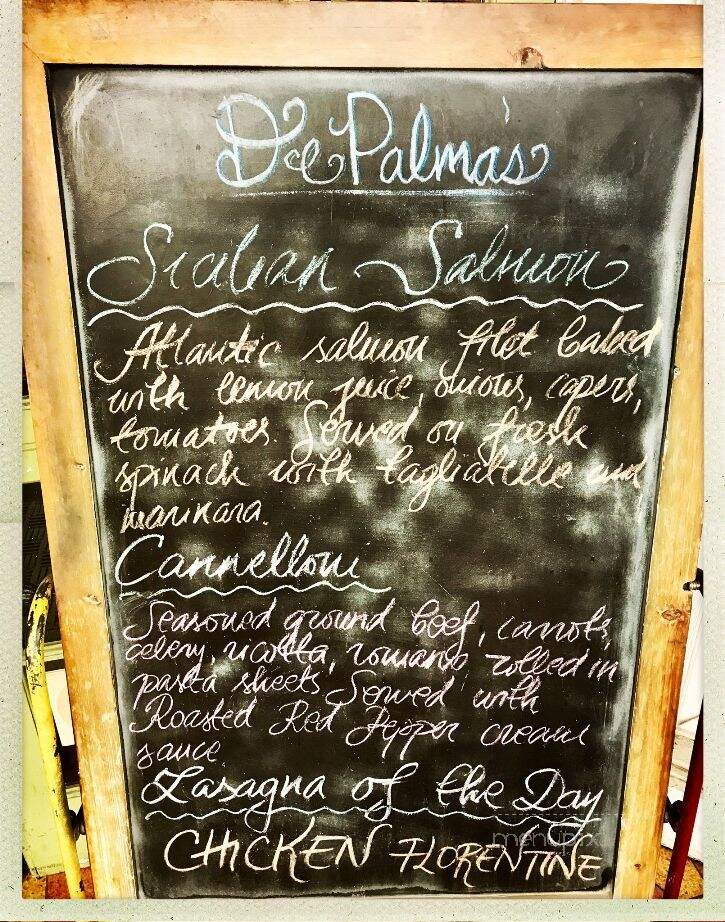 DePalma's
Sicilian Salmon
Atlantic salmon filet baked
with lemon juice, onions, capers,
tomatoes. Served on fresh
spinach with tagliatelle and
marinara.
Cannelloni
Seasoned ground beef, carrots,
celery, ricotta, romano rolled in
pasta sheets. Served with
Roasted Red Pepper cream
sauce
Lasagna of the Day
CHICKEN FLORENTINE
menupix